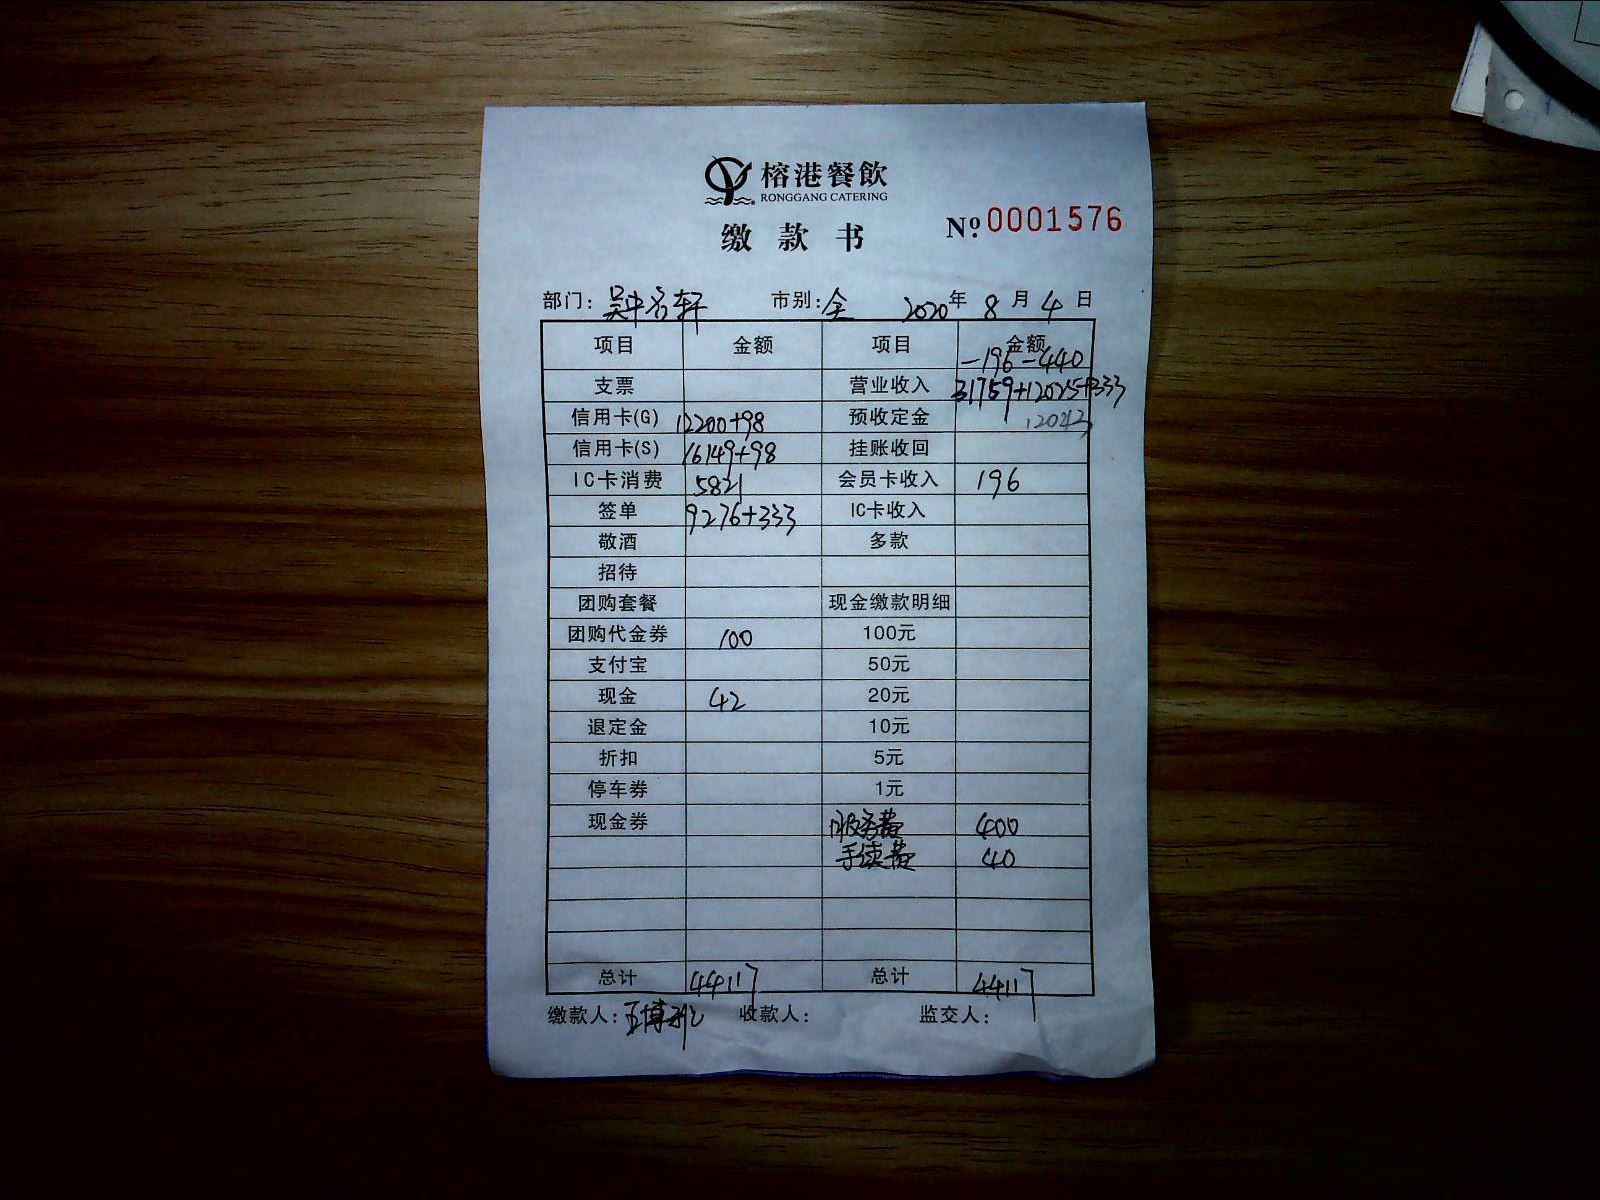 榕港餐飲
RONGGANG CATERING
缴款书
№ 0001576
部门: 吴中名轩 市别: 全 2020年 8月 4日
项目 金额 项目 金额
-196-440
支票 营业收入 31759+12025+333
信用卡(G) 12200+98 预收定金 12042
信用卡(S) 16149+98 挂账收回
IC卡消费 5821 会员卡收入 196
签单 9276+333 IC卡收入
敬酒 多款
招待
团购套餐 现金缴款明细
团购代金券 100 100元
支付宝 50元
现金 42 20元
退定金 10元
折扣 5元
停车券 1元
现金券 服务费 400
手续费 40
总计 44117 总计 44117
缴款人: 收款人: 监交人: